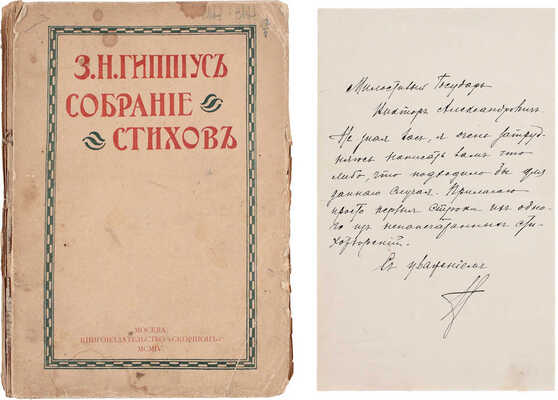 З.Н.ГИППІУСЪ
СОБРАНІЕ
СТИХОВЪ
МОСКВА
КНИГОИЗДАТЕЛЬСТВО «СКОРПІОНЪ»
MCMIV
Милостивый Государь
Викторъ Александровичъ
Не зная васъ, я очень затруд-
няюсь написать вамъ что
либо, что подходило бы для
даннаго случая. Прилагаю
просто первыя строки изъ одно-
го изъ ненапечатанныхъ сти-
хотвореній.
Съ уваженіемъ